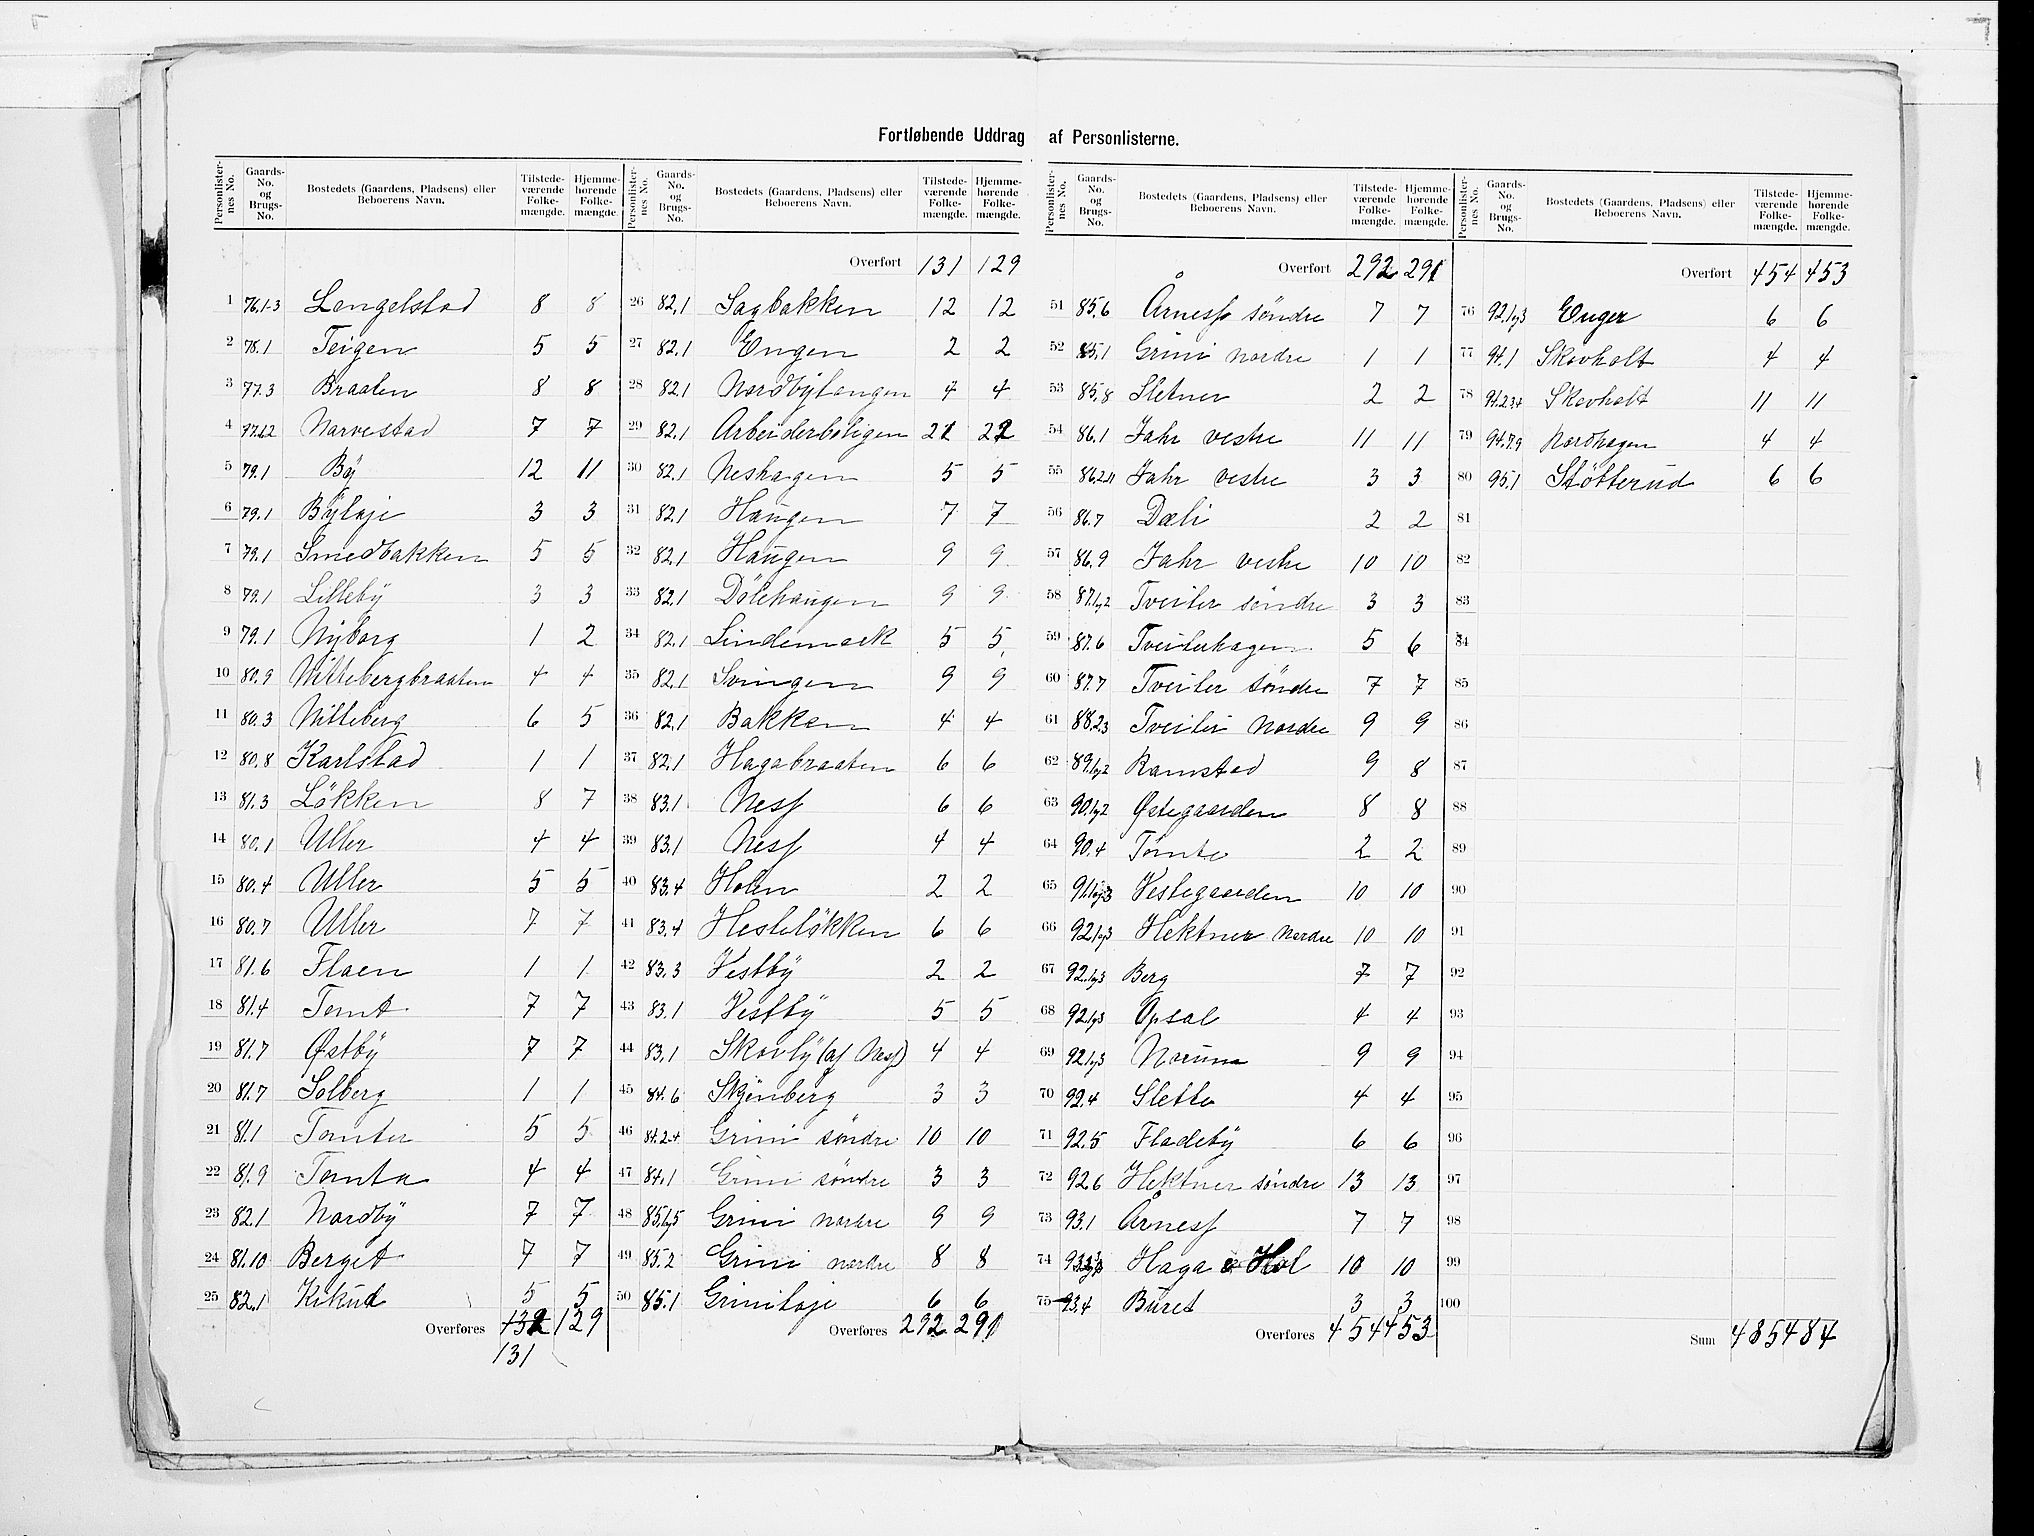 Fortløbende Uddrag af Personlisterne.
Personlister-nes No. | Gaards-No. og Brugs-No. | Bostedets (Gaardens, Pladsens) eller Beboerens Navn. | Tilstede-værende Folke-mængde. | Hjemme-hørende Folke-mængde.
1 76.1-3 Lengelstad 8 8
2 78.1 Teigen 5 5
3 77.3 Braaten 8 8
4 Narvestad 7 7
5 79.1 By 12 11
6 79.1 Byløje 3 3
7 79.1 Smedbakken 5 5
8 79.1 Lilleby 3 3
9 79.1 Nyborg 1 2
10 80.9 Vittebergbraaten 4 4
11 80.3 Vitteberg 6 5
12 80.8 Karlstad 1 1
13 81.3 Løkken 8 7
14 80.1 Uller 4 4
15 80.4 Uller 5 5
16 80.7 Uller 7 7
17 81.6 Flaen 1 1
18 81.4 Tomt 7 7
19 81.7 Østby 7 7
20 81.7 Solberg 1 1
21 81.1 Tomter 5 5
22 81.9 Tomta 4 4
23 82.1 Nordby 7 7
24 81.10 Berget 7 7
25 82.1 Kikut 5 5
Overføres 132 129
131
Personlister-nes No. | Gaards-No. og Brugs-No. | Bostedets (Gaardens, Pladsens) eller Beboerens Navn. | Tilstede-værende Folke-mængde. | Hjemme-hørende Folke-mængde.
Overført 131 129
26 82.1 Sagbakken 12 12
27 82.1 Engen 2 2
28 82.1 Nordbytangen 4 4
29 82.1 Arbeiderboligen 22 22
30 82.1 Neshagen 5 5
31 82.1 Haugen 7 7
32 82.1 Haugen 9 9
33 82.1 Dølehaugen 9 9
34 82.1 Lindemark 5 5
35 82.1 Svingen 9 9
36 82.1 Bakken 4 4
37 82.1 Hagabraaten 6 6
38 83.1 Ness 6 6
39 83.1 Ness 4 4
40 83.4 Holen 2 2
41 83.4 Hesteløkken 6 6
42 83.3 Vestby 2 2
43 83.1 Vestby 5 5
44 83.1 Skovly (af Ness) 4 4
45 84.6 Skjønberg 3 3
46 84.2.4 Grini søndre 10 10
47 84.1 Grini søndre 3 3
48 85.1og5 Grini nordre 9 9
49 85.2 Grini nordre 8 8
50 85.1 Griniløje 6 6
Overføres 292 291
Personlister-nes No. | Gaards-No. og Brugs-No. | Bostedets (Gaardens, Pladsens) eller Beboerens Navn. | Tilstede-værende Folke-mængde. | Hjemme-hørende Folke-mængde.
Overført 292 291
51 85.6 Årness søndre 7 7
52 85.1 Grini nordre 1 1
53 85.8 Sletner 2 2
54 86.1 Jahr vestre 11 11
55 Jahr vestre 3 3
56 86.7 Dæli 2 2
57 86.9 Jahr vestre 10 10
58 87.1og2 Tveiter søndre 3 3
59 87.6 Tveiterhagen 5 6
60 87.7 Tveiter søndre 7 7
61 88.2,3 Tveiter Nordre 9 9
62 89.1og2 Ramstad 9 8
63 90.1og2 Østegaarden 8 8
64 90.4 Tomte 2 2
65 Vestegaarden 10 10
66 92.1og3 Hektner Nordre 10 10
67 92.1og3 Berg 7 7
68 92.1og3 Opsal 4 4
69 92.1og3 Norum 9 9
70 92.4 Sletta 4 4
71 92.5 Fladeby 6 6
72 92.6 Hektner søndre 13 13
73 93.1 Årness 7 7
74 Haga o Hol 10 10
75 93.4 Buret 3 3
Overføres 454 453
Personlister-nes No. | Gaards-No. og Brugs-No. | Bostedets (Gaardens, Pladsens) eller Beboerens Navn. | Tilstede-værende Folke-mængde. | Hjemme-hørende Folke-mængde.
Overført 454 453
76 92.1og3 Enger 6 6
77 94.1 Skovholt 4 4
78 94.2.3.4 Skovholt 11 11
79 94.7.9 Nordhagen 4 4
80 95.1 Støtterud 6 6
81
82
83
84
85
86
87
88
89
90
91
92
93
94
95
96
97
98
99
100
Sum 485 484